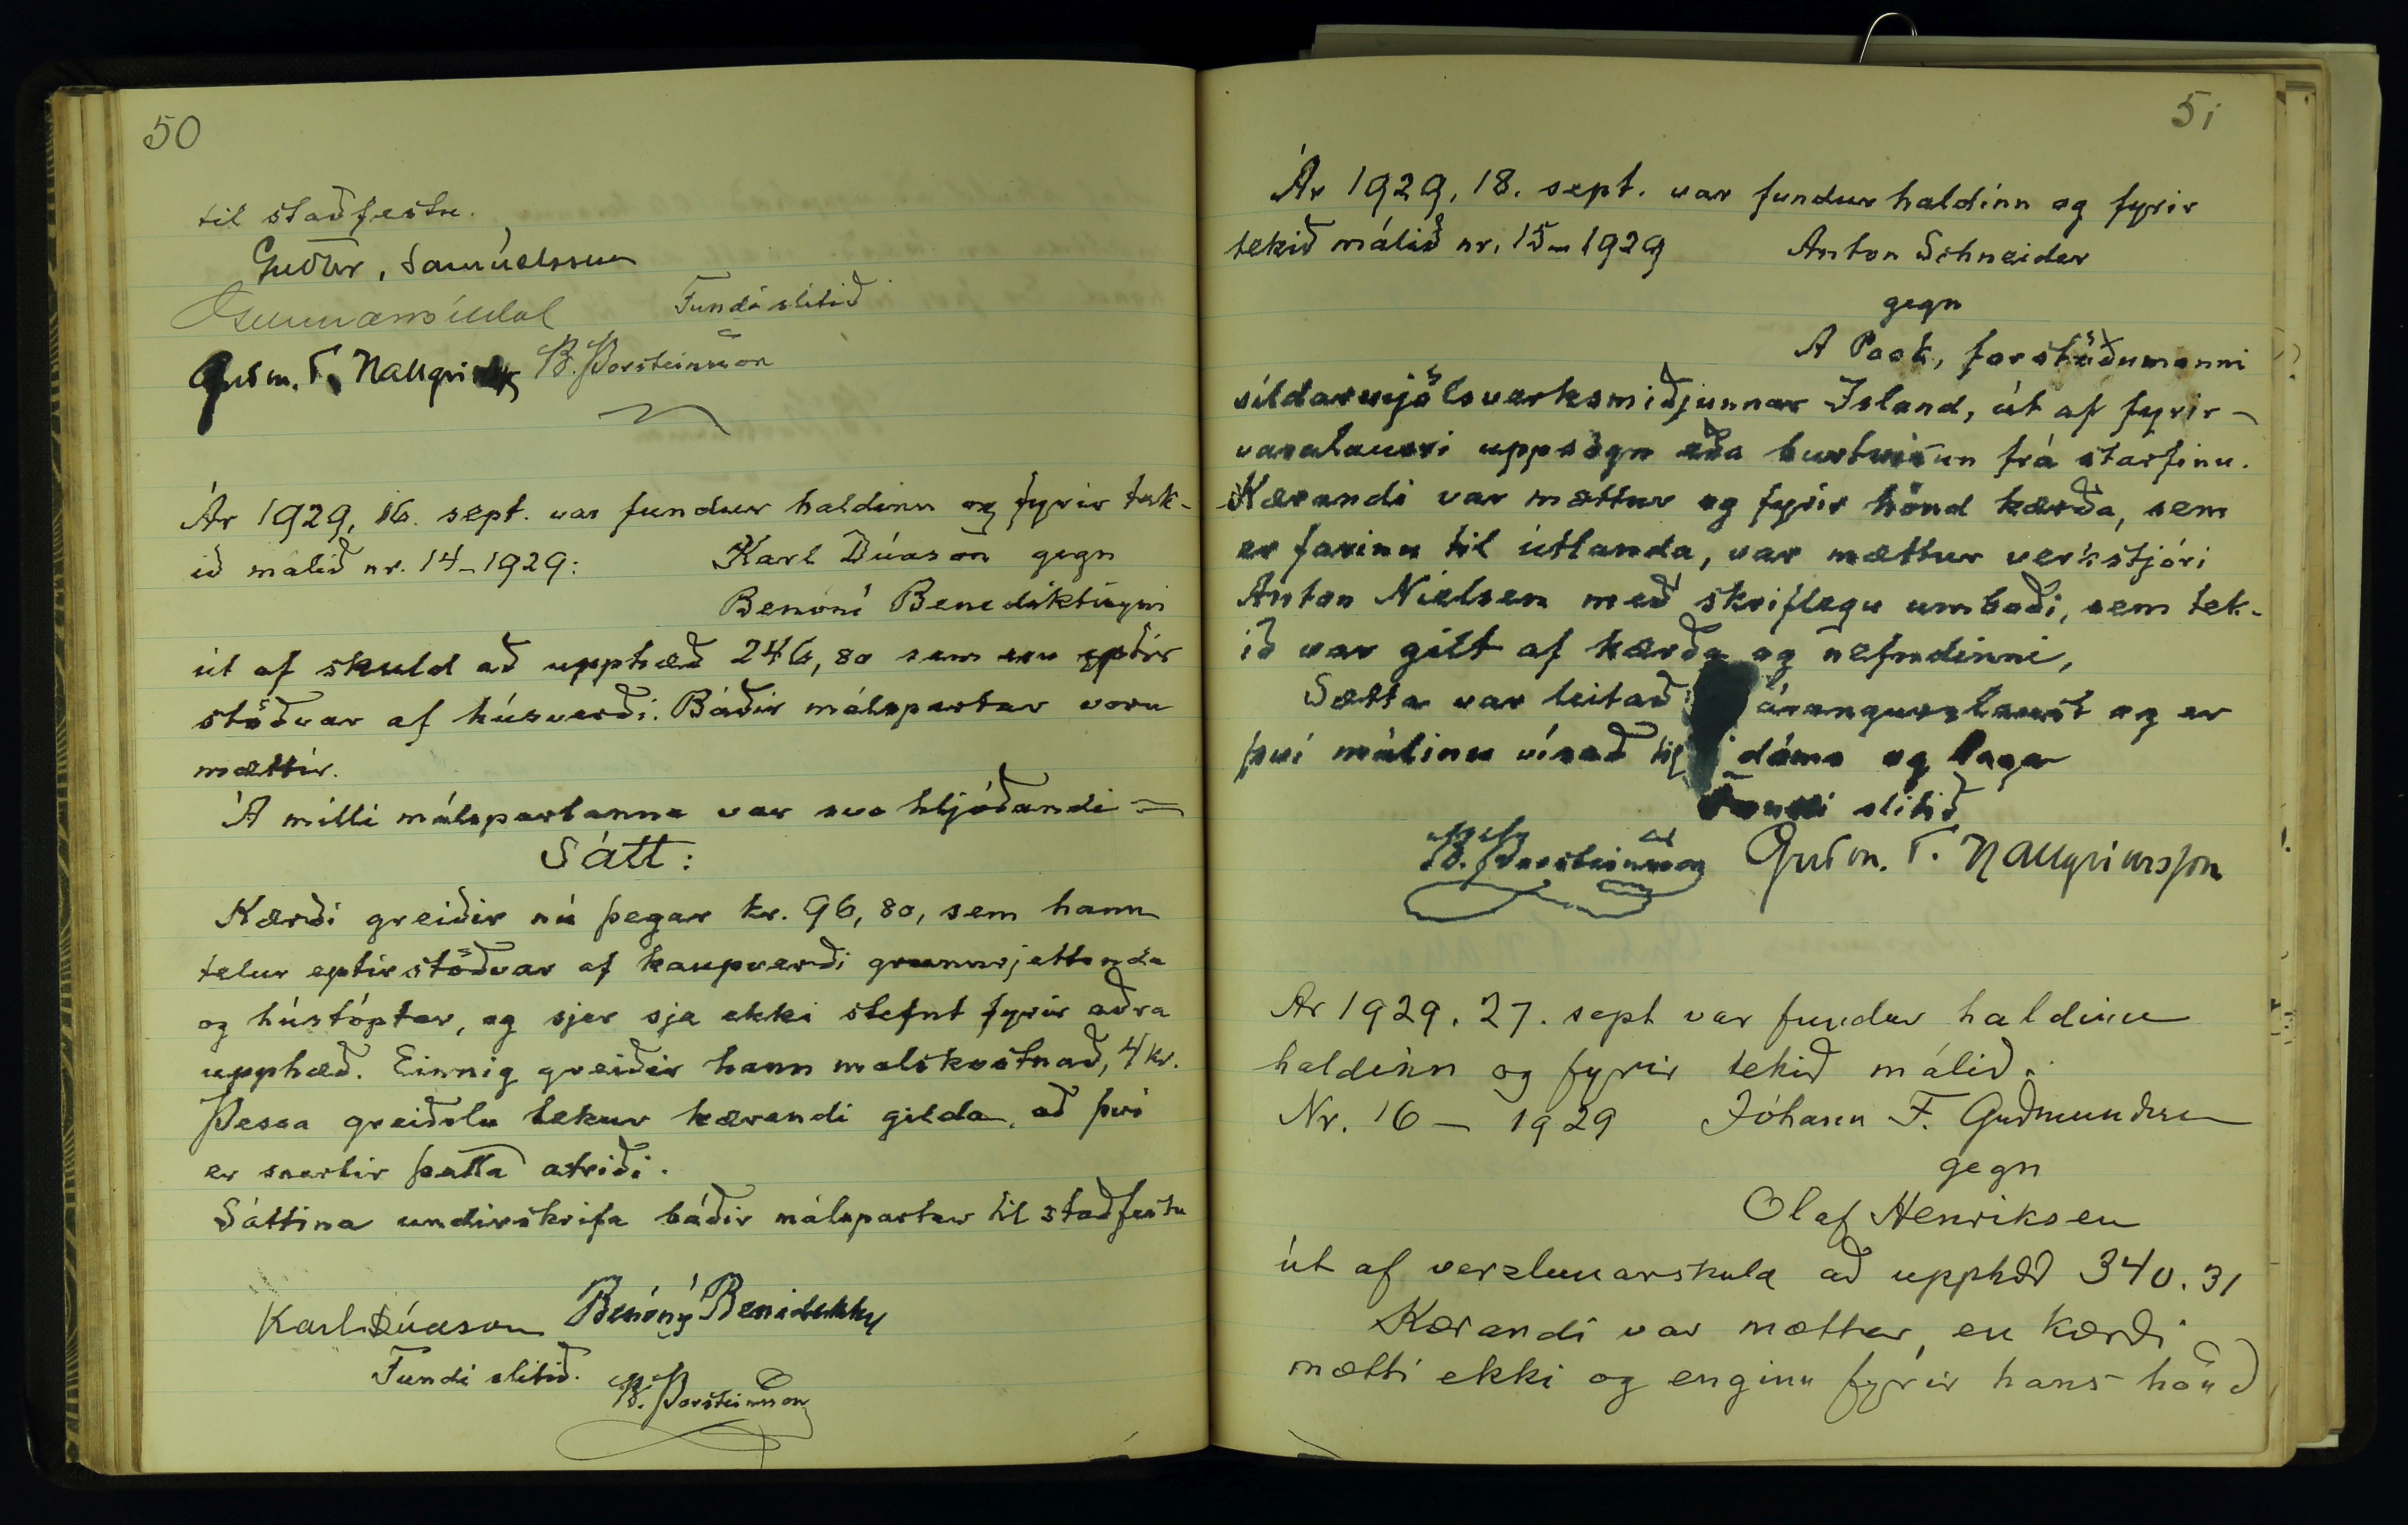 50
til staðfestu.
Guðbr. Samúelsson
Fundi slitið
Guðm. T. Hallgrímss
B. Þorsteinsson
Ár 1929, 16. sept. var fundur haldinn og fyrir tek-
ið málið nr. 14-1929: Karl Dúason gegn
Benóní Benediktssyni
út af skuld að upphæð 246,80 sem eru eptir
stöðvar af húsverði. Báðir málspartar voru
mættir.
Á milli málspartanna var svo hljóðandi =
Sátt:
Kærði greiðir nú þegar kr. 96,80, sem hann
telur eptirstöðvar af kaupverði grunnrjettinda
og hústóptar, og sjer sje ekki stefnt fyrir aðra
upphæð. Einnig greiðir hann malskostnað, 4 kr.
Þessa greiðslu tekur kærandi gilda, að því
er snertir þetta atriði.
Sáttina undirskrifa báðir málspartar til staðfestu
Karl Dúason Benóný Benediktss
Fundi slitið. B. Þorsteinsson
51
Ár 1929, 18. sept. var fundur haldinn og fyrir
tekið málið nr. 15-1929 Anton Schneider
gegn
A Post, forstöðumanni
síldarmjölsverksmiðjunnar Island, út af fyrir-
varalausri uppsögn eða burtvísun frá starfinu.
Kærandi var mættur og fyrir hönd kærða, sem
er farinn til útlanda, var mættur verkstjóri
Anton Nielsen með skriflegu umboði, sem tek-
ið var gilt af kærða og nefndinni,
Sætta var leitað árangurslaust og er
því málinu vísað til dóms og laga
Fundi slitið
B. Þorsteinsson Guðm. T. Hallgrímsson
Ar 1929. 27. sept var fundur haldinn
haldinn og fyrir tekið málið:
Nr. 16 - 1929 Jóhann F. Guðmundsson
gegn
Olaf Henriksen
út af verzlunarskuld að upphæð 340.31
Kærandi var mættur, en kærði
mætti ekki og enginn fyrir hans hönd